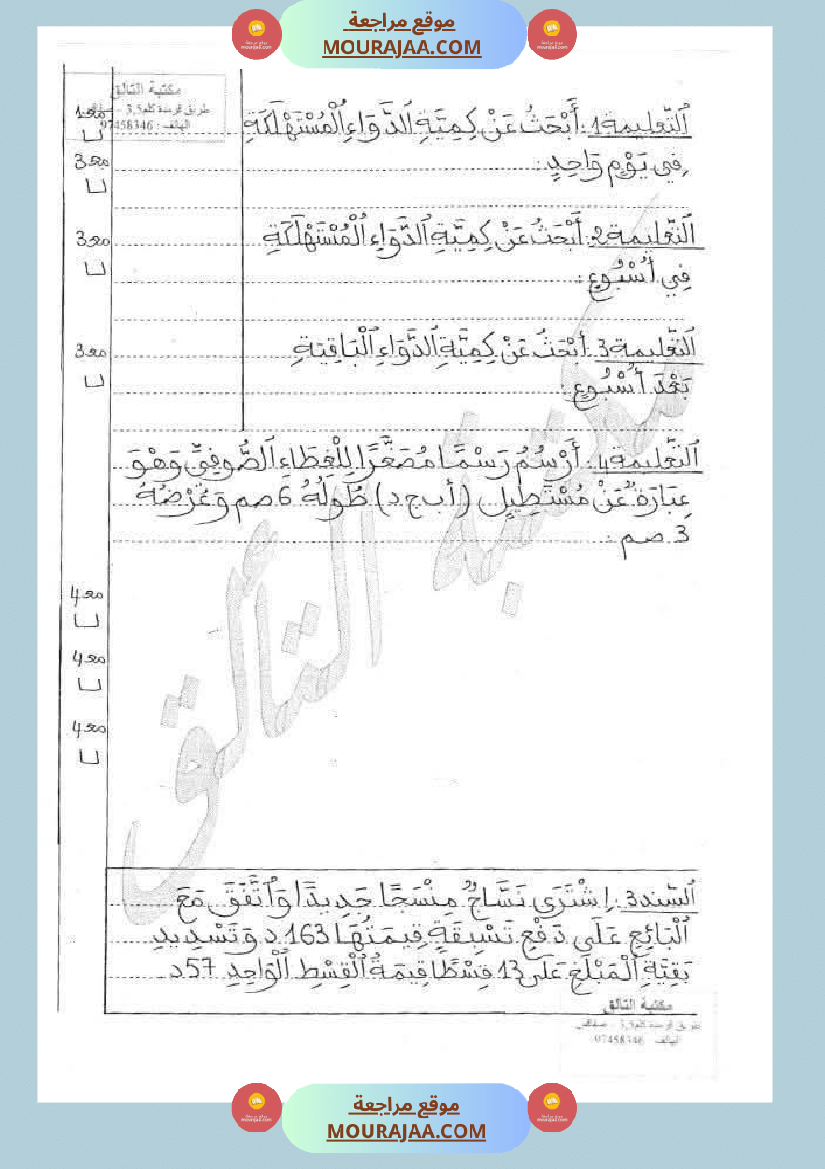 موقع مراجعة
MOURAJAA.COM
مكتبة التالق
طريق قرمدة كلم3,5 - صفاقس
الهاتف : 97458346
اَلتَّعْلِيمَة1: أَبْحَثُ عَنْ كِمِيَّةِ اَلدَّوَاءِ اَلْمُسْتَهْلَكَةِ
فِي يَوْمٍ وَاحِدٍ:
اَلتَّعْلِيمَة2: أَبْحَثُ عَنْ كِمِيَّةِ اَلدَّوَاءِ اَلْمُسْتَهْلَكَةِ
فِي أُسْبُوعٍ:
اَلتَّعْلِيمَة3: أَبْحَثُ عَنْ كِمِيَّةِ اَلدَّوَاءِ اَلْبَاقِيَةِ
بَعْدَ أُسْبُوعٍ:
اَلتَّعْلِيمَة4: أَرْسُمُ رَسْمًا مُصَغَّرًا لِلْغِطَاءِ اَلصُّوفِيِّ وَهْوَ
عِبَارَةٌ عَنْ مُسْتَطِيلٍ (أ ب ج د) طُولُهُ 6 صم وَعَرْضُهُ
3 صم :
مع1
مع3
مع3
مع3
مع4
مع4
مع4
مكتبة التالق
اَلسَّنَد3: اِشْتَرَى نَسَّاجٌ مِنْسَجًا جَدِيدًا وَاَتَّفَقَ مَعَ
اَلْبَائِعِ عَلَى دَفْعِ تَسْبِقَةٍ قِيمَتُهَا 163 د وَتَسْدِيدِ
بَقِيَّةِ اَلْمَبْلَغِ عَلَى 13 قِسْطًا قِيمَةُ اَلْقِسْطِ اَلْوَاحِدِ 57 د
مكتبة التالق
طريق قرمدة كلم3,5 - صفاقس
الهاتف : 97458346
موقع مراجعة
MOURAJAA.COM